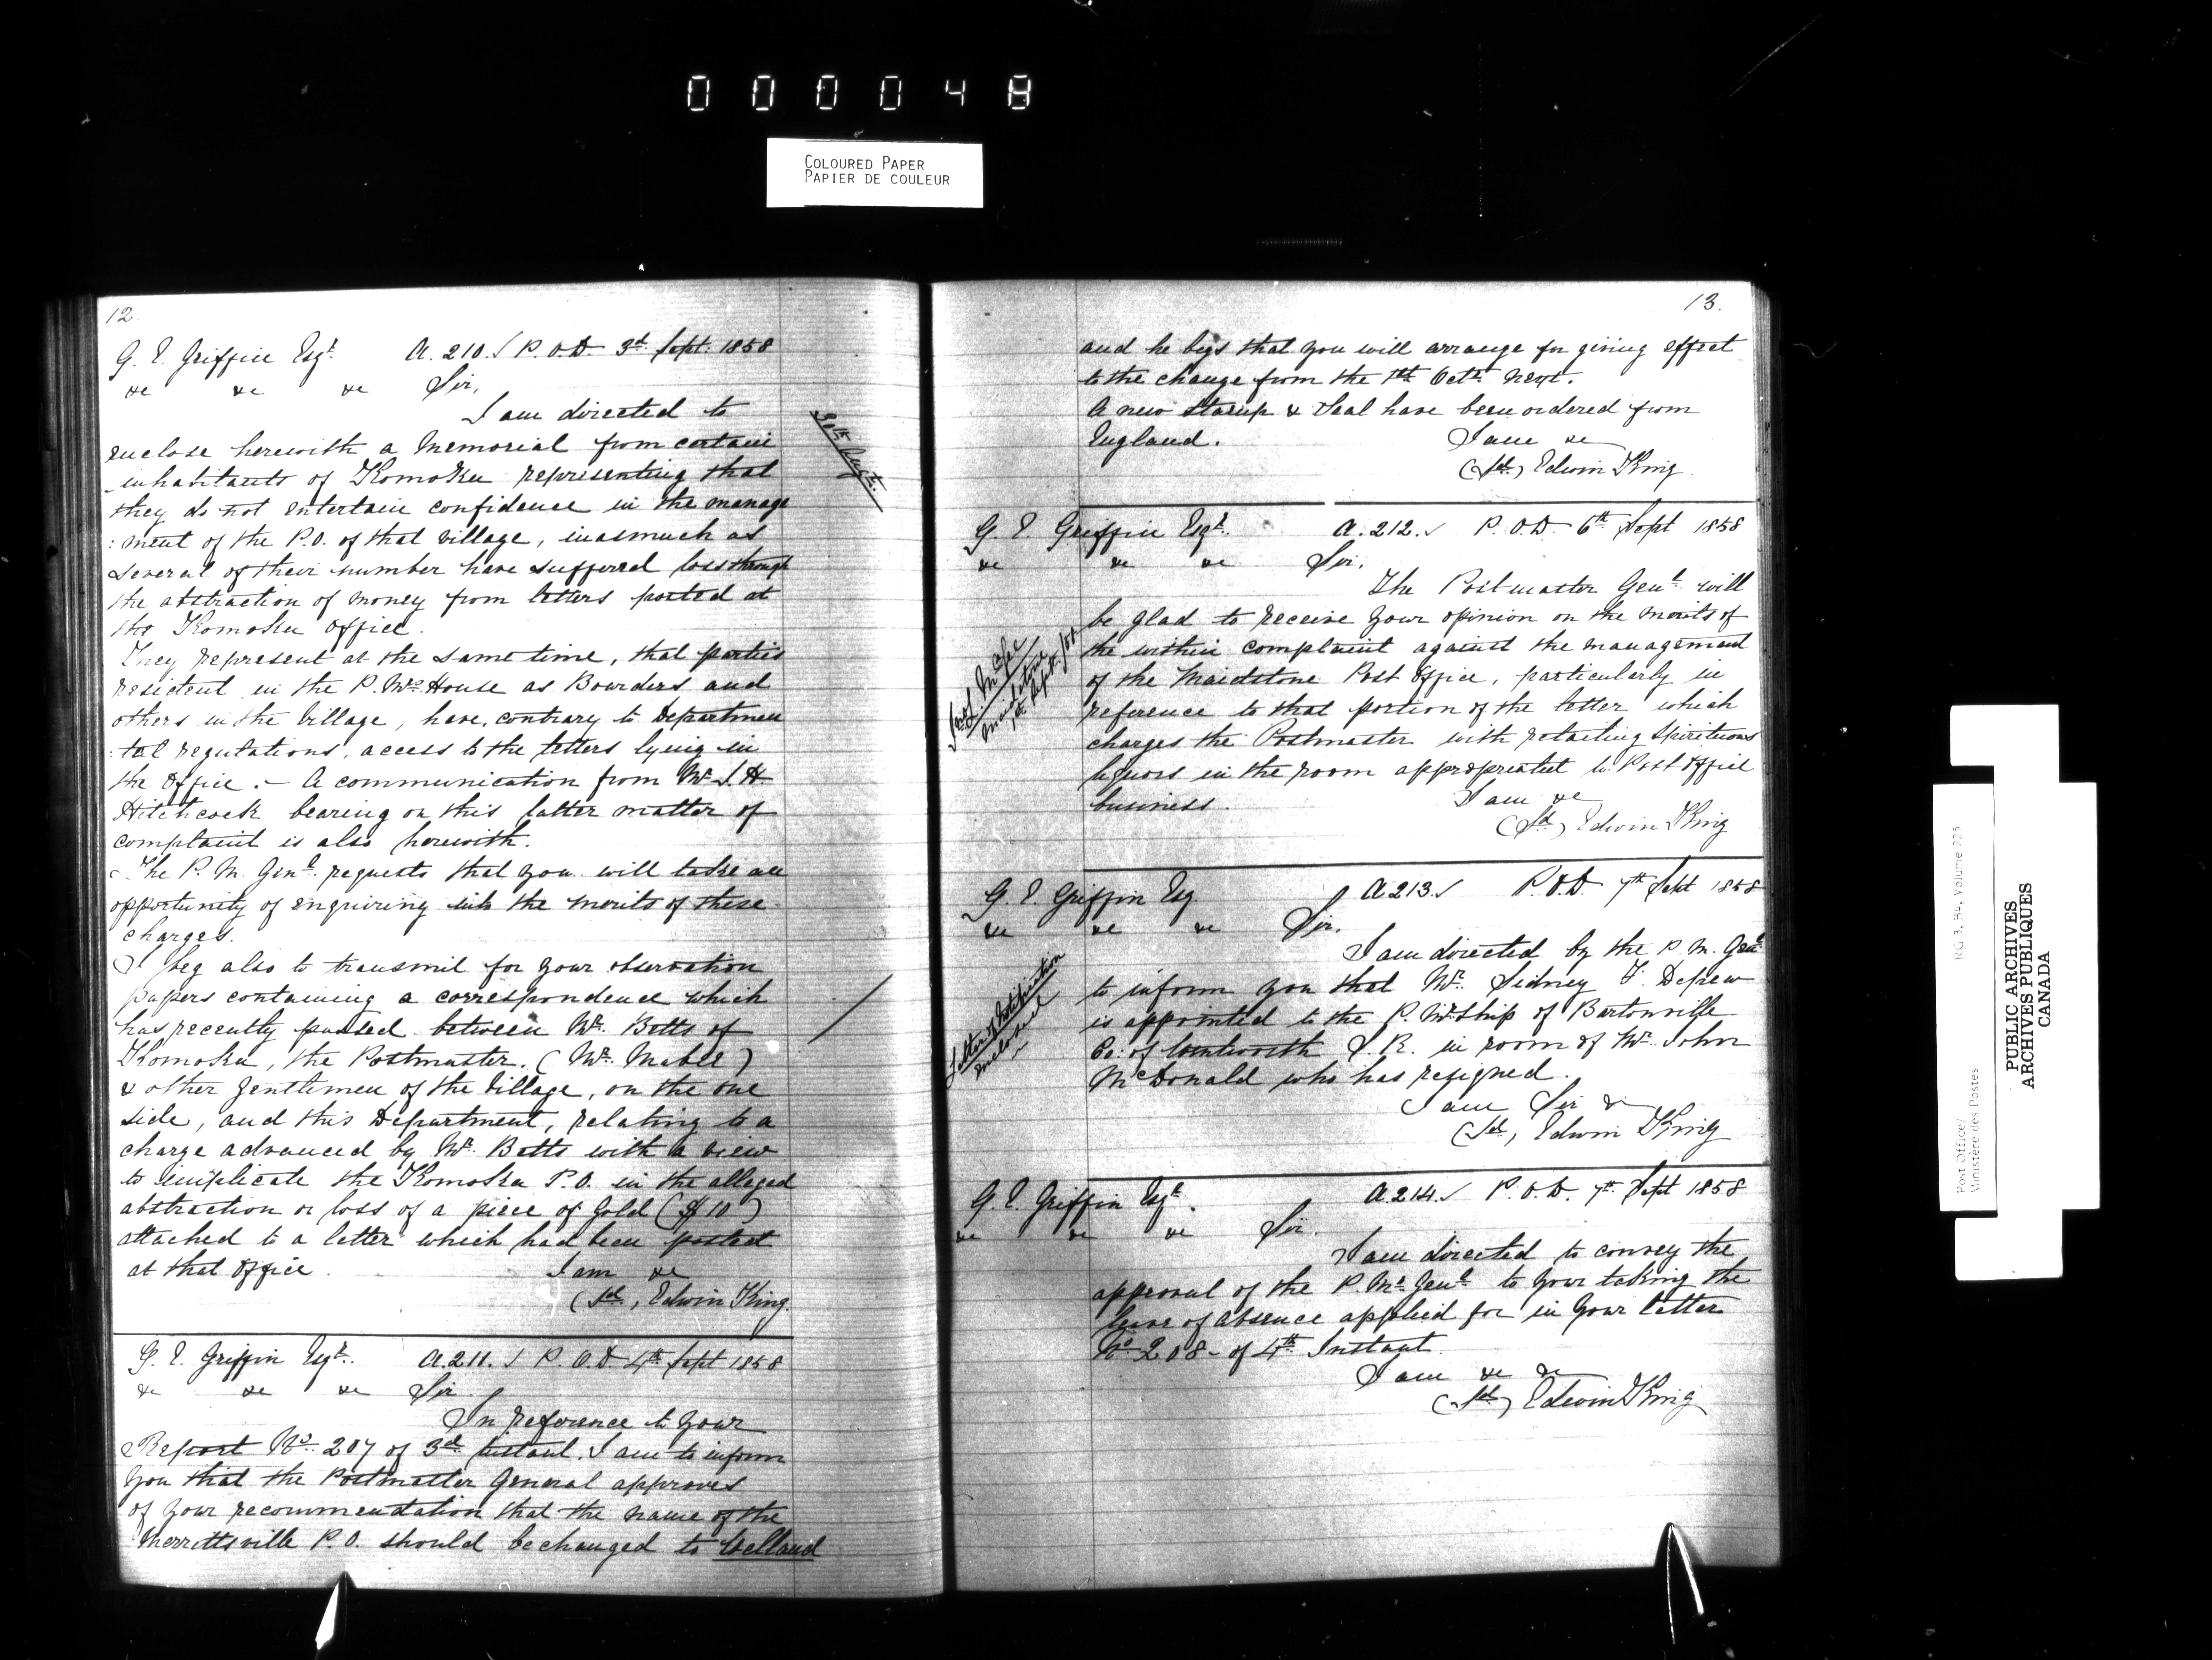 000048
COLOURED PAPER
PAPIER DE COULEUR
12
G. E. Griffin Esqr. A. 210. P.O.D. 3d Sept. 1858
&c &c &c Sir,
I am directed to
enclose herewith a Memorial from certain
inhabitants of Komoka representing that
they do not entertain confidence in the manage
:ment of the P.O. of that village, inasmuch as
several of their number have suffered loss through
the abstraction of money from letters posted at
the Komoka office.
They represent at the same time, that parties
resident in the P.Mrs. House as Boarders and
others in the Village, have, contrary to Departmen
:tal regulations, access to the letters lying in
the Office. - A communication from Mr. S. H.
Hitchcock bearing on this latter matter of
complaint is also herewith.
The P. M. Genl. requests that you will take an
opportunity of enquiring into the merits of these
charges.
I beg also to transmit for your observation
papers containing a correspondence which
has recently passed between Mr. Betts of
Komoka, the Postmaster, (Mr. Mabee)
& other Gentlemen of the Village, on the one
side, and this Department, relating to a
charge advanced by Mr. Betts with a view
to implicate the Komoka P.O. in the alleged
abstraction or loss of a piece of Gold ($10)
attached to a letter which had been posted
at that Office.
I am &c
(Sd, Edwin King.
30th Augt.
G. E. Griffin Esqr. A. 211. P.O.D 4th Sept 1858
&c &c &c Sir
In reference to your
Report No. 207 of 3d Instant. I am to inform
you that the Postmaster General approves
of your recommendation that the name of the
Merrittsville P.O. should be changed to Welland
13.
and he begs that you will arrange for giving effect
to the change from the 1st Octr. next.
A new stamp & Seal have been ordered from
England.
I am &c
(Sd) Edwin King
G. E. Griffin Esqr. A. 212. P.O.D 6th Sept 1858
&c &c &c Sir,
The Postmaster Genl. will
be glad to receive your opinion on the merits of
the within complaint against the management
of the Maidstone Post Office, particularly in
reference to that portion of the letter which
charges the Postmaster with retailing Spirituous
liquors in the room appropriated to Post Office
business.
I am &c
(Sd) Edwin King
McGee
Maidstone
1st Sept. /58
G. E. Griffin Esq A 213. P.O.D 7th Sept 1858
&c &c &c Sir.
I am directed by the P. M. Genl.
to inform you that Mr. Sidney F. Depew
is appointed to the P. M.ship of Bartonville
Co: of Wentworth S. R. in room of Mr. John
McDonald who has resigned.
I am Sir &c
(Sd, Edwin King
Letter of Notification
enclosed
G. E. Griffin Esqr. A 214. P.O.D. 7th Sept 1858
&c &c &c Sir.
I am directed to convey the
approval of the P. Mr. Genl. to your taking the
leave of absence applied for in your letter
No 208 - of 4th Instant
I am &c &c
(Sd) Edwin King
Post Office/ RG 3, B4, Volume 225
Ministère des Postes
PUBLIC ARCHIVES
ARCHIVES PUBLIQUES
CANADA